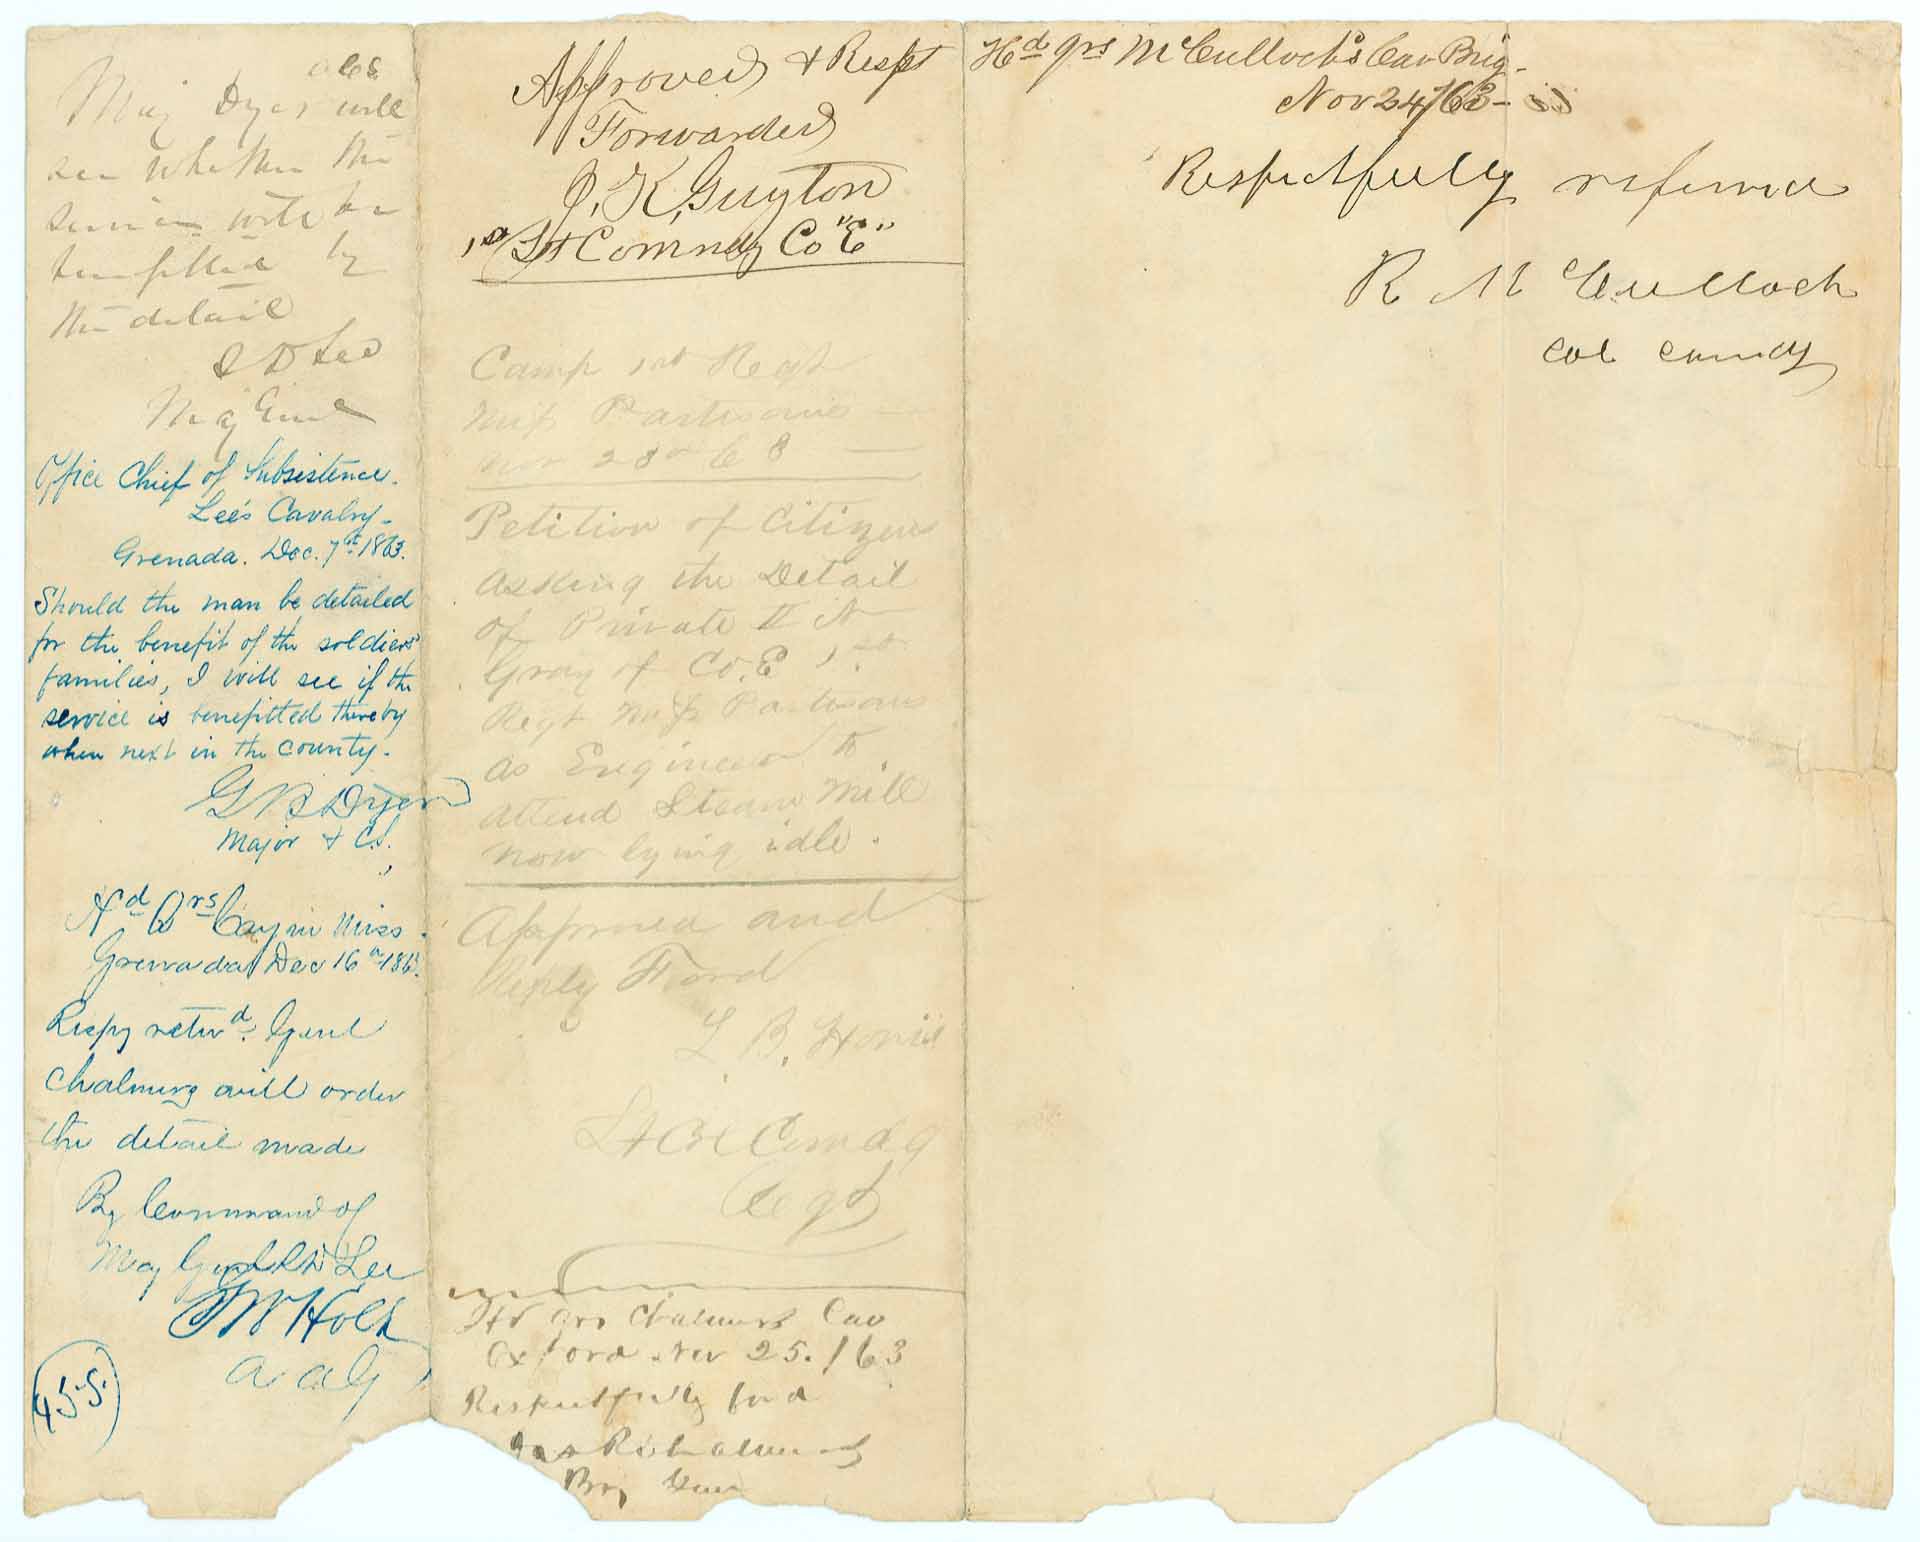 Maj Dyer will
see whether the
service will be
benefitted by
the detail
S D Lee
Maj Genl
Office Chief of Subsistence.
Lee's Cavalry -
Grenada. Dec. 7th 1863.
Should the man be detailed
for the benefit of the soldiers'
families, I will see if the
service is benefitted thereby
when next in the county.
G B Dyer
Major & C.S.
Hd Qrs Cavy in Miss.
Grenada Dec 16th 1863.
Respy returd. Genl
Chalmers will order
the detail made
By Command of
Maj Genl S D Lee
W Holt
A A G
455.
Approved & Respt
Forwarded
J. K. Guyton
1st Lt Commdg Co "E"
Camp 1st Regt
Miss Partisans
Nov 23rd 63
Petition of Citizens
asking the Detail
of Private N
Gray of Co. E 1st
Regt Miss Partisans
as Engineer to
attend Steam Mill
now lying idle.
Approved and
Resply Ford
L B. Hovis
Lt Col Comdg
Regt
Hd Qrs Chalmers Cav
Oxford Nov 25. /63
Respectfully ford
Jas R Chalmers
Brig Genl
Hd qrs McCulloch's Cav Brig -
Nov 24/63 -
Respectfully referred
R McCulloch
Col Comdg